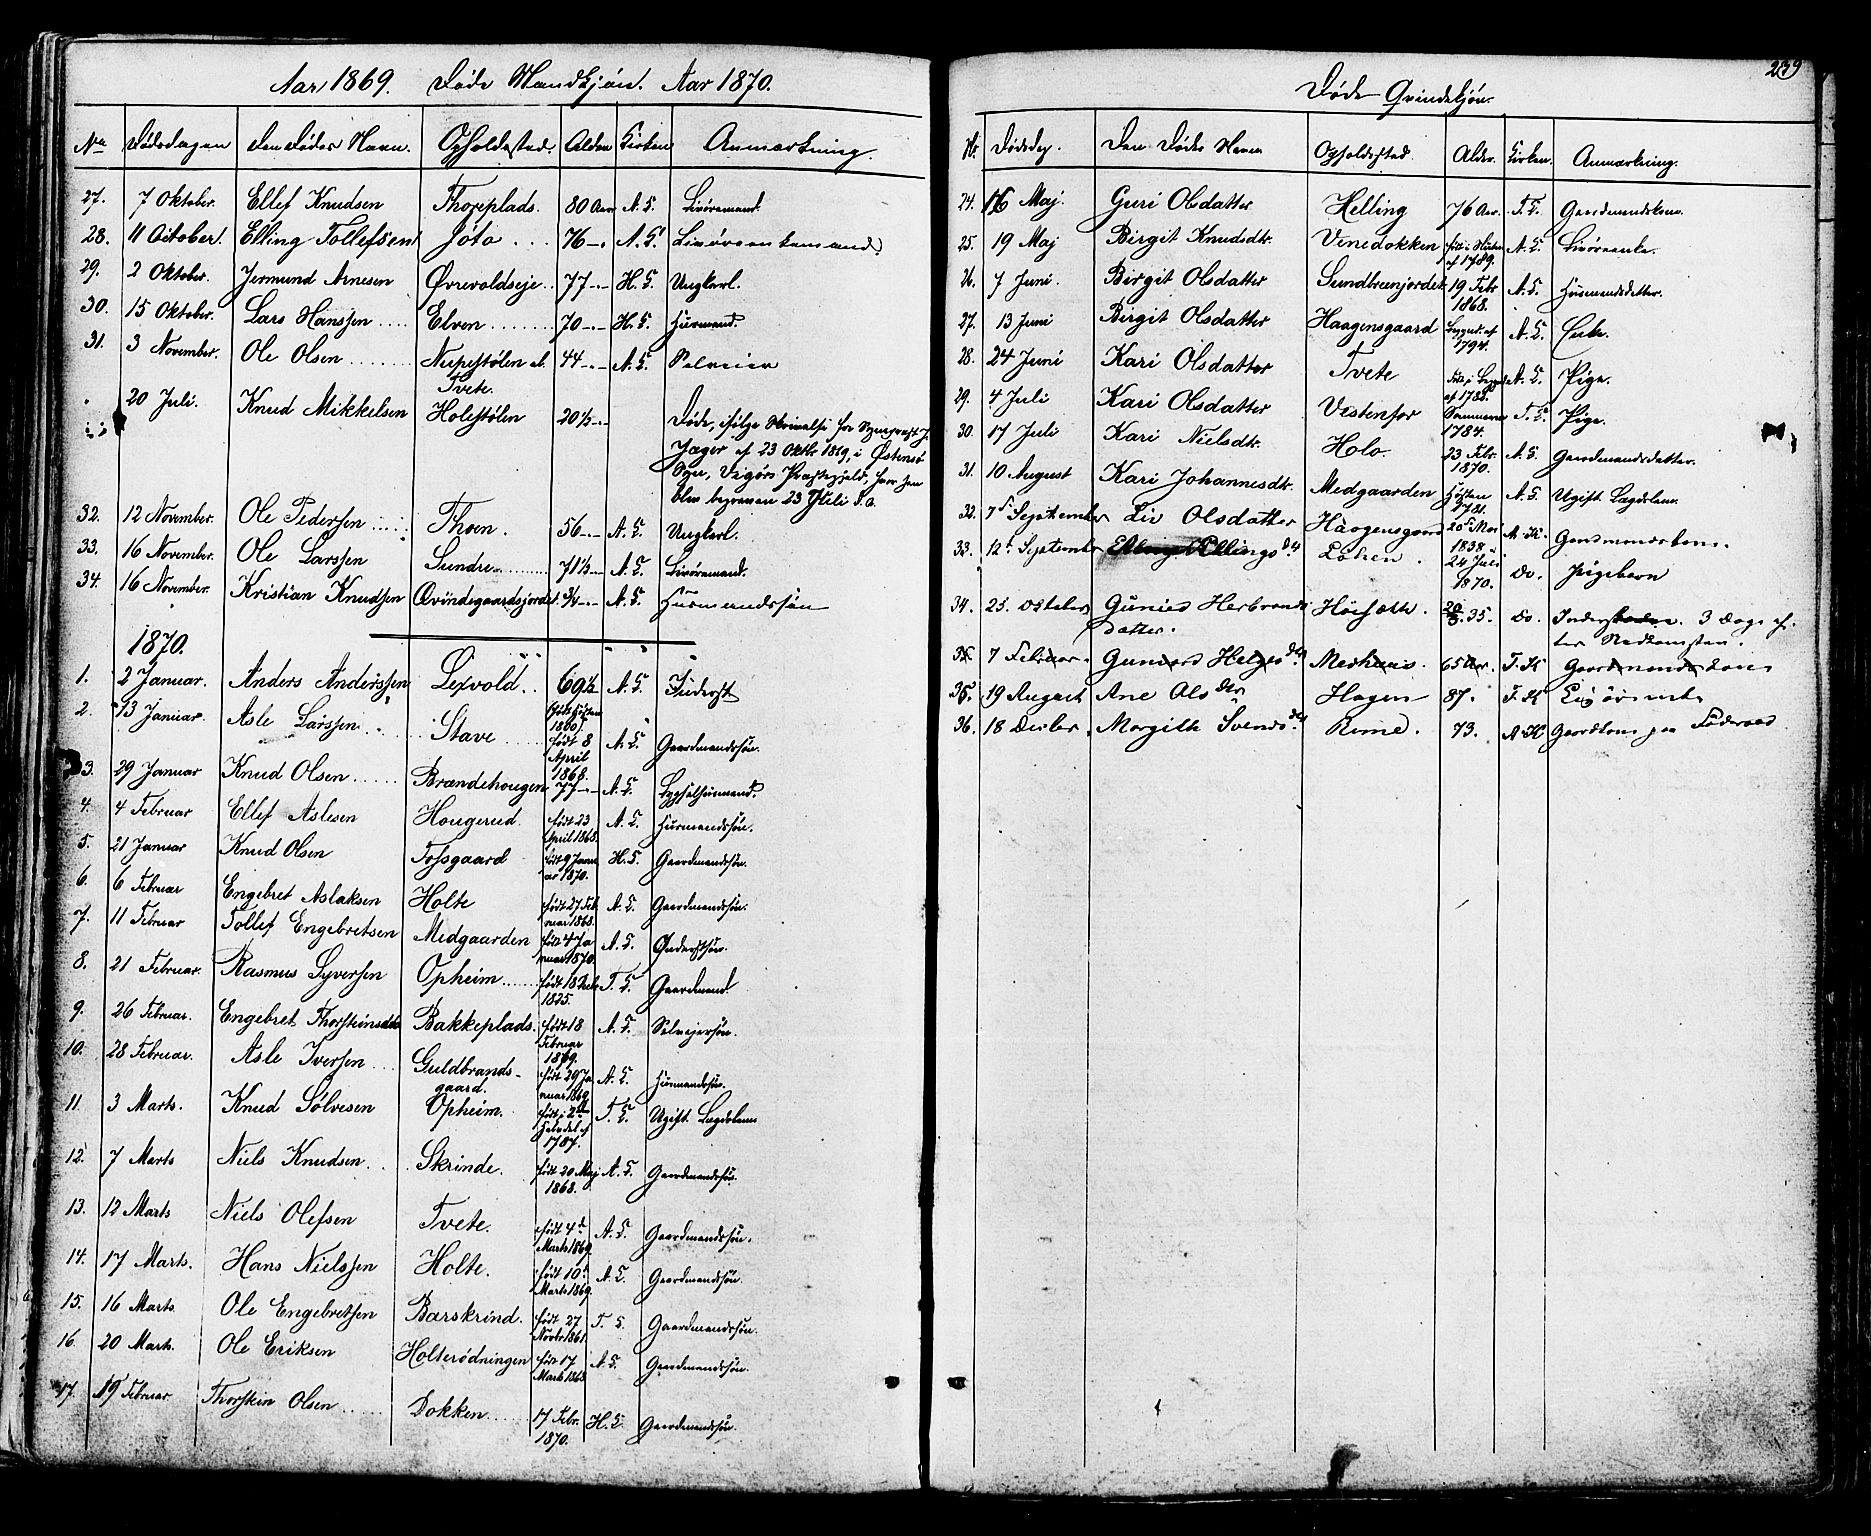 Aar 1869. Døde Mandkjøn. Aar 1870.
No Dødsdagen Den Dødes Navn. Opholdssted. Alder Kirken Anmærkning.
27. 7 Oktober. Ellef Knudsen Thoreplads. 80 Aar A. K. Livøremand.
28. 11 October. Elling Tollefsen Jóto . . . 76 -„- A. K.
29. 2 Oktober. Jermund Arnesen Øvrevoldseje . . 77 -„- H. K. Ungkarl.
30. 15 Oktober. Lars Hanssen .... Elven ........ 70 -„- H. K. Husmand.
31. 3 November. Ole Olsen ....... Nupestølen al. 44 -„- A. K. Selveier
Tvete.
20 Juli. Knud Mikkelsen Holestølen 20½ -„- Døde, ifølge Skrivelse fra Sognepræst J.
Jager af 23 Oktbr 1869, i Østensø
Sogn, Vigørs Præstegjeld, hvor han
blev begraven 23 Juli s. a.
32. 12 November. Ole Pedersen ...... Thoen. 56 -„- A. K. Ungkarl.
33. 16 November. Ole Larssen Sundre......... 71½ -„- A. K. Livøremand.
34. 16 November. Kristian Knudsen Qvindegaardsjordet ¾ -„- A. K. Husmandssøn
1870.
1. 2 Januar. Anders Anderssen Lexvold . . 69½ A. K. Inderst
2. 13 Januar. Asle Larssen . . Stave ..... født 8 April 1868. A. K. Gaardmandssøn.
3. 29 Januar Knud Olsen ...... Brændehougen 77 -„- A. K. Husmand.
4. 4 Februar Ellef Aslesen Hougerud. født 23 April 1868. A. K. Husmandssøn.
5. 21 Januar Knud Olsen Tofsgaard født 9 Januar 1870. H. K. Gaardmandssøn.
6. 6 Februar Engebret Aslaksen Holte født 27 Februar 1868. A. K. Gaardmandssøn.
7. 11 Februar Tollef Engebretsen Medgaarden født 4 Januar 1870. A. K. Inderstsøn.
8. 21 Februar. Rasmus Syversen Opheim...... født 18 1825. T. K. Gaardmand
9. 26 Februar. Engebret Thorsteinsen Bakkeplads. født 18 Februar 1869. A. K. Selvejersøn.
10. 28 Februar. Asle Iversen ... Guldbrands-
gaard. født 29 Januar 1869 A. K. Husmandssøn.
11. 3 Marts. Knud Sølvesen Opheim. født i 2den Halvdel af 1787. T. K. Ugift Lægdslem
12. 7 Marts Niels Knudsen . . Skrinde. født 20 Maj 1868. A. K. Gaardmandssøn.
13. 12 Marts Niels Olefsen Tvete. født 4d Marts 1869. A. K. Gaardmandssøn.
14. 17 Marts. Hans Nielssen Holte. født 10d Marts 1869. A. K. Gaardmandssøn.
15. 16 Marts. Ole Engebretsen Barskrind. født 27 Novbr 1861. T. K. Gaardmandssøn.
16. 20 Marts. Ole Eriksen Holterødningen født 17 Marts 1868 A. K. Gaardmandssøn.
17. 19 Februar Thorstein Olsen ..... Dokken...... 17 Febr. 1870. H. K. Gaardmandssøn.
239
Døde Qvindekjøn.
Nr. Dødsdag. Den Dødes Navn Opholdssted. Alder. Kirken. Anmærkning.
24. 16 Maj. Guri Olsdatter Helling 76 Aar. T. K. Gaardmandskone.
25. 19 Maj Birgit Knudsdtr. Venedokken født i Høsten af 1789. A. K. Livørenke.
26. 7 Juni. Birgit Olsdatter Sundbrenjordet 19 Febr 1868. A. K. Husmandsdatter.
27. 13 Juni Birgit Olsdatter Haagensgaard Begynd. af 1794. A. K. Enke.
28. 24 Juni Kari Olsdatter Tvete af 1788. A. K. Pige.
29. 4 Juli Kari Olsdatter Vestenfor Sommeren 1784. T. K. Pige.
30. 17 Juli Kari Nielsdtr. Holo. 23 Febr. 1870. A. K. Gaardmandsdatter.
31. 10 August Kari Johannesdtr. Medgaarden Høsten 1781. A. K. Ugift Lægdslem.
32. 7d September Liv Olsdatter Haagensgaard 20d Mai 1838. A. K. Gaardmandskone.
33. 12d September Ellingsdtr Løken. 24 Juli 1870. do. Pigebarn
34. 25. October Gunild Herbrands
datter. 35. do. 3 Dage ef-
ter Nedkomsten.
35 7 Februar. Gunvord Helgesdtr. Medhuus. 65 Aar. T. K Gaardmandskone
35. 19 August Ane Olsdtr Hagen 87. T. K
36. 18 Decbr. Margith Svendsdtr Rime. 73. A. K Gaardkone paa Føderaad